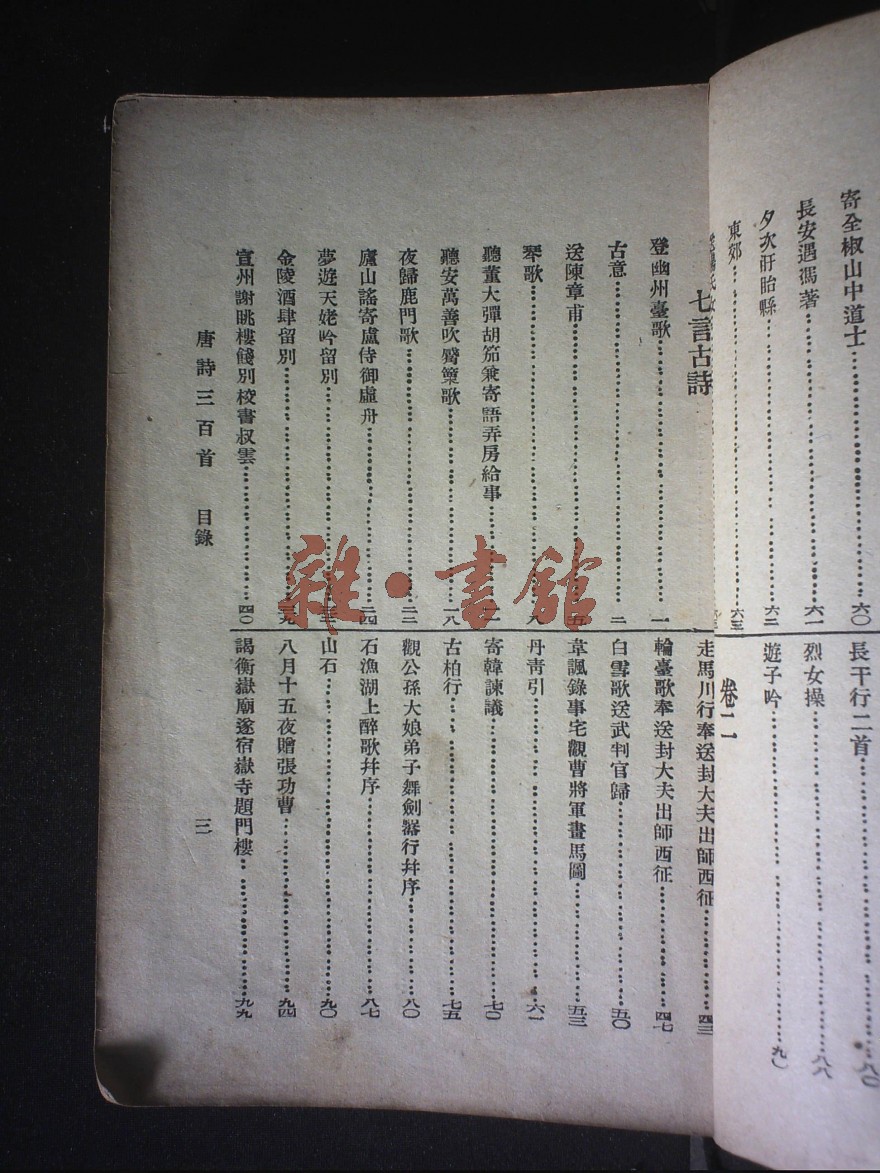 寄全椒山中道士……六〇
長安遇馮著……六一
夕次盱眙縣……六二
東郊……六三
長干行二首……八〇
烈女操……八八
遊子吟……九
卷二
七言古詩
登幽州臺歌……一
古意……二
送陳章甫……五
琴歌……八
聽董大彈胡笳兼寄語弄房給事
聽安萬善吹觱篥歌……一八
夜歸鹿門歌……二三
廬山謠寄盧侍御虛舟……二四
夢遊天姥吟留別
金陵酒肆留別……三九
宣州謝眺樓餞別校書叔雲……四〇
走馬川行奉送封大夫出師西征……四三
輪臺歌奉送封大夫出師西征……四七
白雪歌送武判官歸……五〇
韋諷錄事宅觀曹將軍畫馬圖……五三
丹青引……六一
寄韓諫議……七〇
古柏行……七五
觀公孫大娘弟子舞劍器行幷序……八〇
石漁湖上醉歌幷序……八七
山石……九〇
八月十五夜贈張功曹……九四
謁衡嶽廟遂宿嶽寺題門樓……九九
唐詩三百首 目錄 三
雜·書館